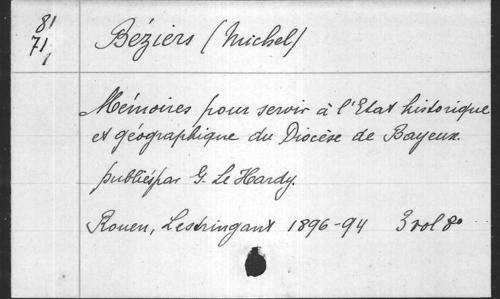 81
71
1
Béziers (Michel)
Mémoires pour servir à l'Etat historique
et géographique du Diocèse de Bayeux
publiés par G. Le Hardy.
Rouen, Lestringant 1896-94 3 vol 8º